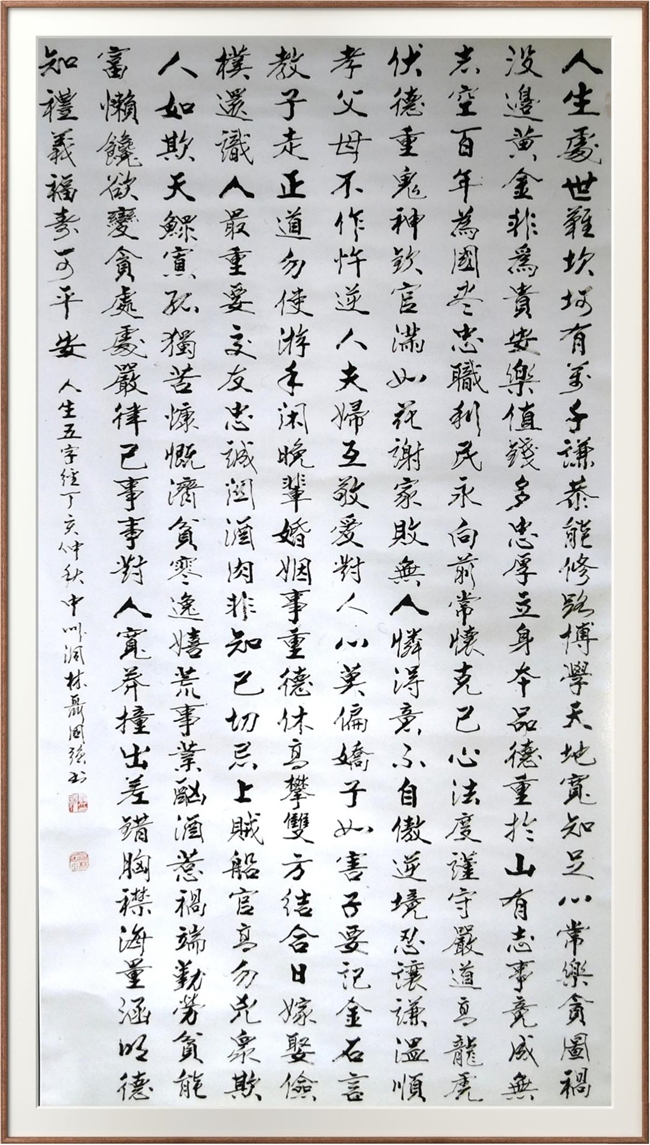 人生處世難坎坷有萬千謙恭能修路博學天地寬知足心常樂貪圖禍
沒邊黃金非為貴安樂值錢多忠厚立身本品德重於山有志事竟成無
志空百年為國尽忠職利民永向前常懷克己心法度謹守嚴道高龍虎
伏德重鬼神欽官滿如花謝家敗無人憐得意不自傲逆境忍讓謙溫順
孝父母不作忤逆人夫婦互敬愛對人心莫偏嬌子如害子要記金石言
教子走正道勿使游手闲晚輩婚姻事重德休高攀雙方結合日嫁娶儉
樸還識人最重要交友忠誠関酒肉非知己切忌上賊船官高勿兇衆欺
人如欺天鰥寡孤獨苦慷慨濟貧寒逸嬉荒事業酗酒惹禍端勤勞貧能
富懶饞欲變貧處處嚴律己事事對人寬莽撞出差錯胸襟海量涵明德
知禮義福壽可平安 人生五字經丁亥仲秋中州洞林聶国強书